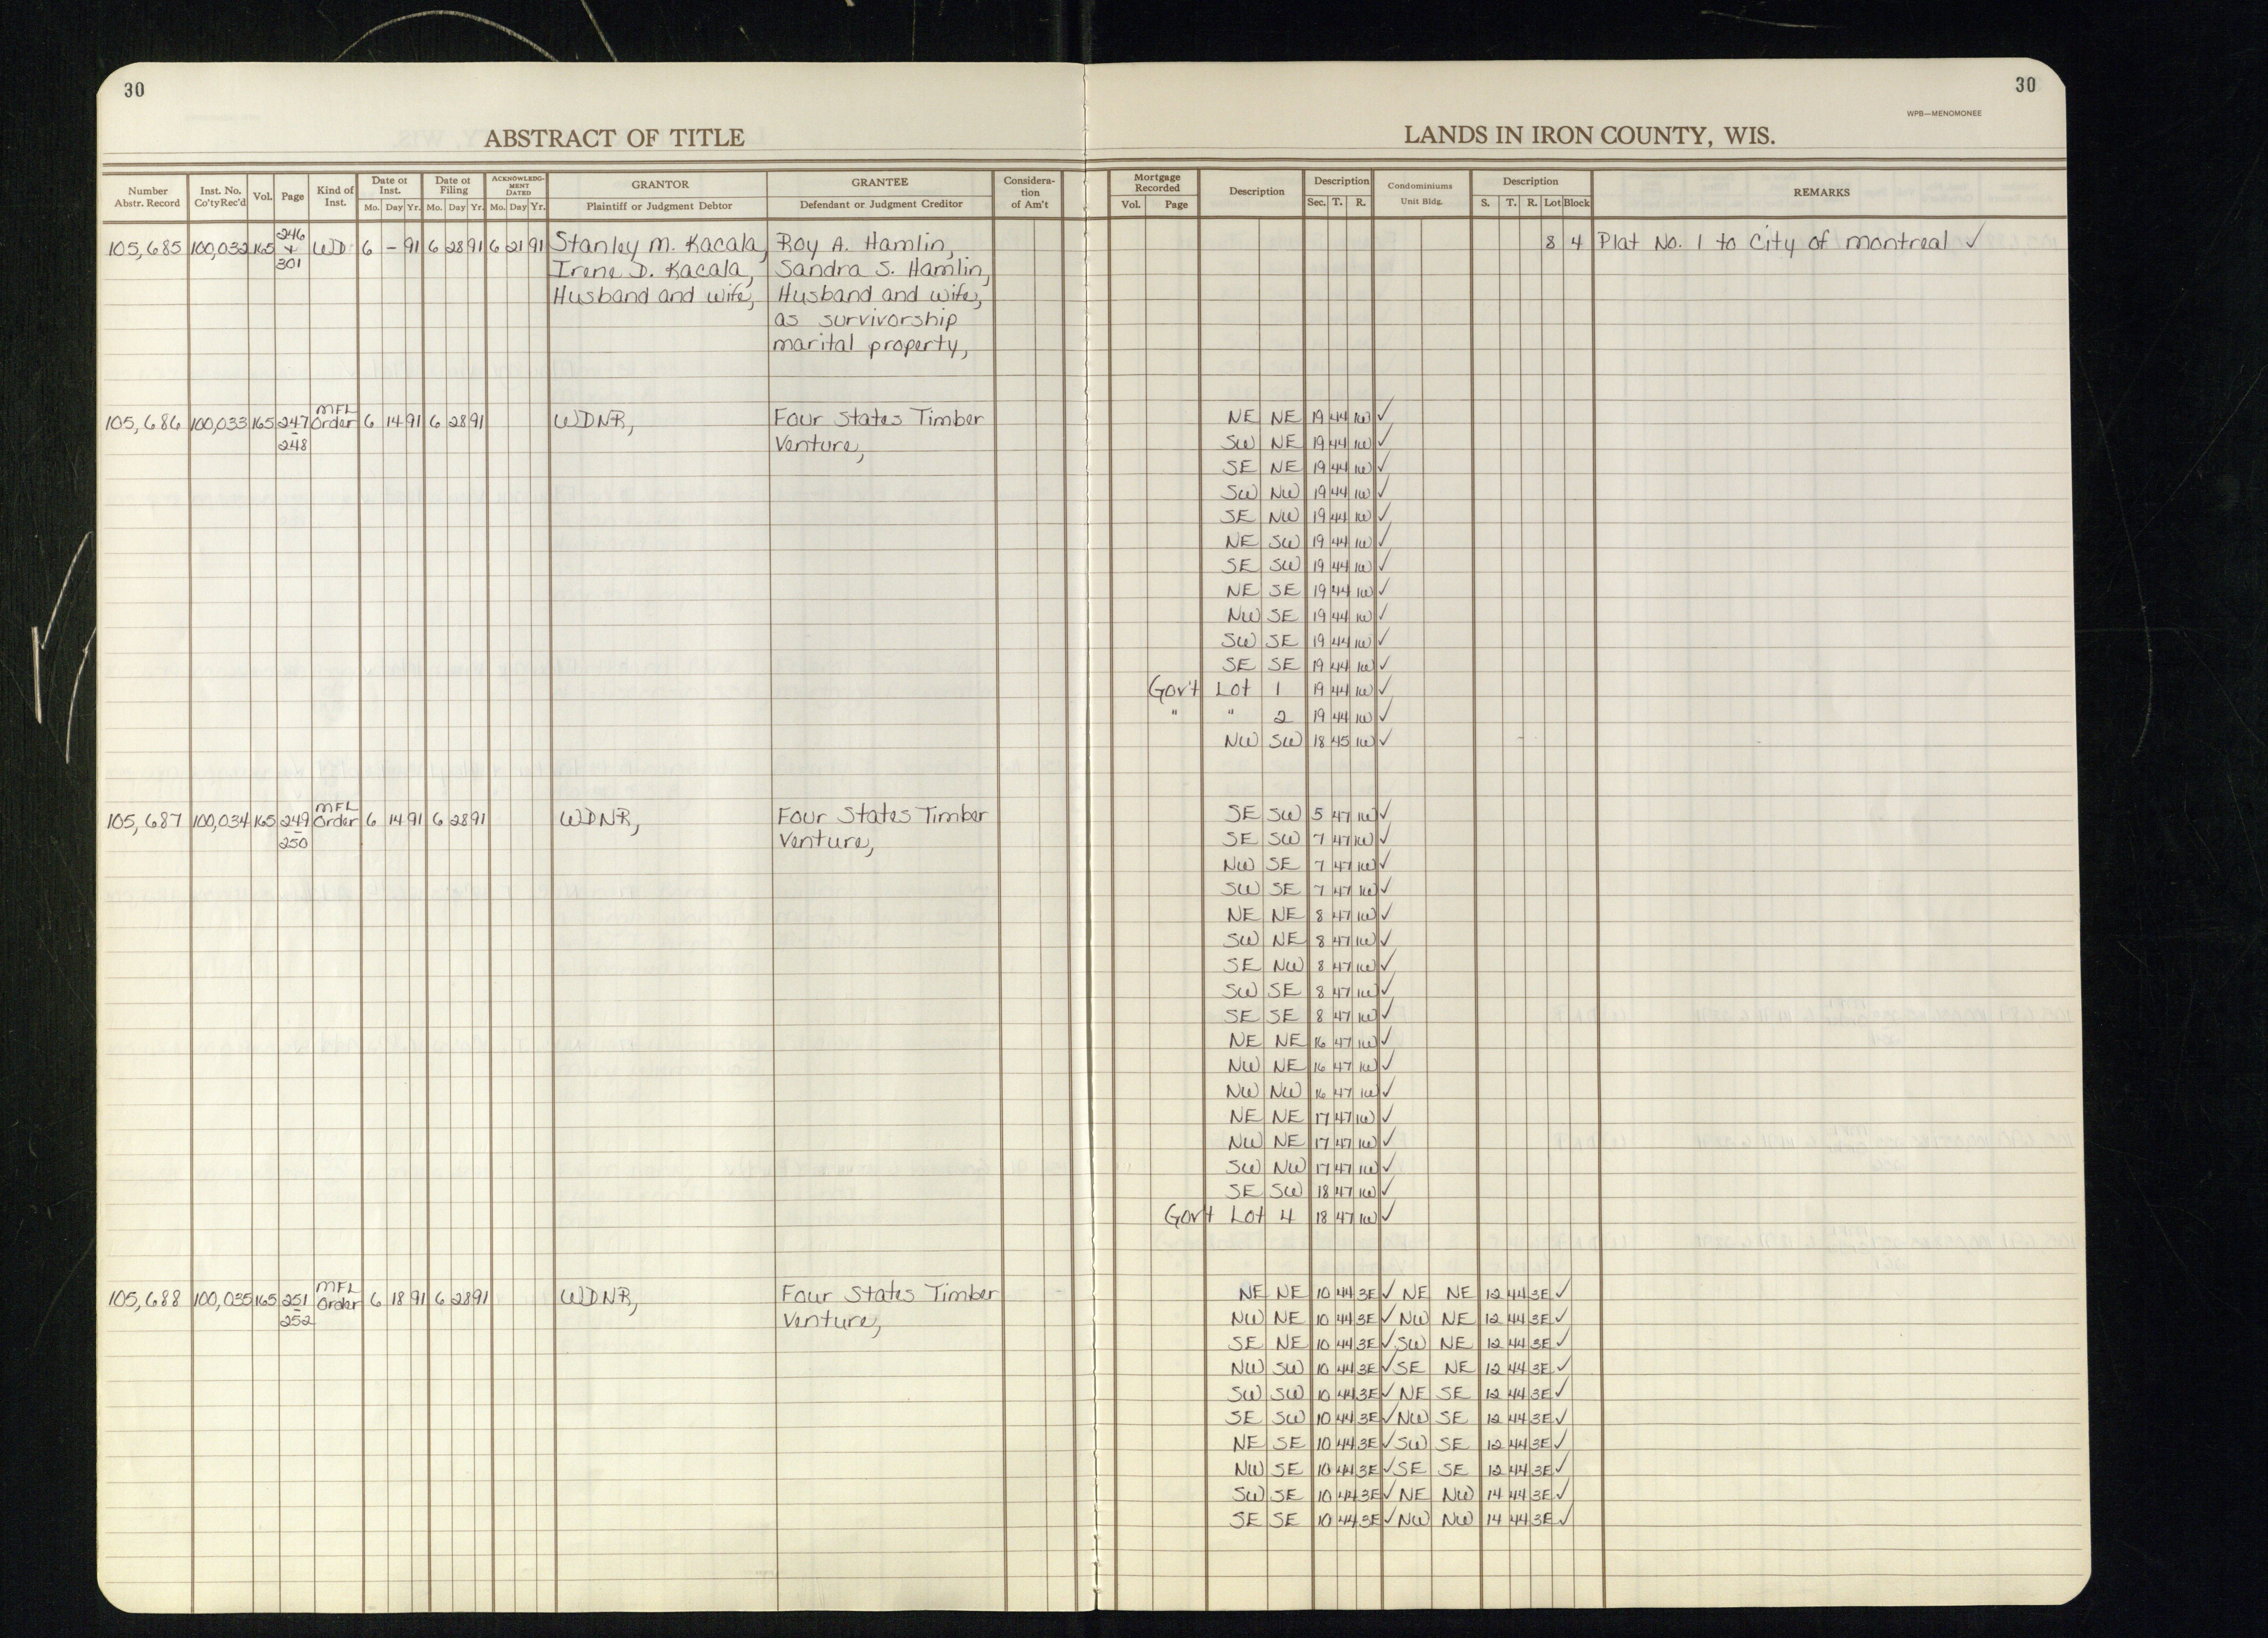 30
30
WPB—MENOMONEE
ABSTRACT OF TITLE
LANDS IN IRON COUNTY, WIS.
Number Abstr. Record
Inst. No. Co'ty Rec'd
Vol.
Page
Kind of Inst.
Date of Inst.
Mo. Day Yr.
Date of Filing
Mo. Day Yr.
ACKNOWLEDG-MENT DATED
Mo. Day Yr.
GRANTOR
Plaintiff or Judgment Debtor
GRANTEE
Defendant or Judgment Creditor
Considera-tion of Am't
Mortgage Recorded
Vol. Page
Description
Description
Sec. T. R.
Condominiums
Unit Bldg.
Description
S. T. R. Lot Block
REMARKS
105,685 100,032 165 246 + 301 WD 6 - 91 6 28 91 6 21 91 Stanley M. Kacala, Roy A. Hamlin, 8 4 Plat No. 1 to City of Montreal ✓
Irene D. Kacala, Sandra S. Hamlin,
Husband and wife, Husband and wife,
as survivorship
marital property,
105,686 100,033 165 247 - 248 MFL Order 6 14 91 6 28 91 WDNR, Four States Timber NE NE 19 44 1W ✓
Venture, SW NE 19 44 1W ✓
SE NE 19 44 1W ✓
SW NW 19 44 1W ✓
SE NW 19 44 1W ✓
NE SW 19 44 1W ✓
SE SW 19 44 1W ✓
NE SE 19 44 1W ✓
NW SE 19 44 1W ✓
SW SE 19 44 1W ✓
SE SE 19 44 1W ✓
Gov't Lot 1 19 44 1W ✓
" " 2 19 44 1W ✓
NW SW 18 45 1W ✓
105,687 100,034 165 249 - 250 MFL Order 6 14 91 6 28 91 WDNR, Four States Timber SE SW 5 47 1W ✓
Venture, SE SW 7 47 1W ✓
NW SE 7 47 1W ✓
SW SE 7 47 1W ✓
NE NE 8 47 1W ✓
SW NE 8 47 1W ✓
SE NW 8 47 1W ✓
SW SE 8 47 1W ✓
SE SE 8 47 1W ✓
NE NE 16 47 1W ✓
NW NE 16 47 1W ✓
NW NW 16 47 1W ✓
NE NE 17 47 1W ✓
NW NE 17 47 1W ✓
SW NW 17 47 1W ✓
SE SW 18 47 1W ✓
Gov't Lot 4 18 47 1W ✓
105,688 100,035 165 251 - 252 MFL Order 6 18 91 6 28 91 WDNR, Four States Timber NE NE 10 44 3E ✓ NE NE 12 44 3E ✓
Venture, NW NE 10 44 3E ✓ NW NE 12 44 3E ✓
SE NE 10 44 3E ✓ SW NE 12 44 3E ✓
NW SW 10 44 3E ✓ SE NE 12 44 3E ✓
SW SW 10 44 3E ✓ NE SE 12 44 3E ✓
SE SW 10 44 3E ✓ NW SE 12 44 3E ✓
NE SE 10 44 3E ✓ SW SE 12 44 3E ✓
NW SE 10 44 3E ✓ SE SE 12 44 3E ✓
SW SE 10 44 3E ✓ NE NW 14 44 3E ✓
SE SE 10 44 3E ✓ NW NW 14 44 3E ✓